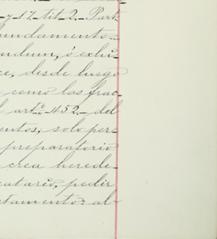 y 12. tit. 2. Part.
fundamento
ndum, ó exhi-
ce, desde luego
como los frac-
l artº 452 del
entos, solo per-
preparatorio
crea herede-
atario, pedir
tamento al